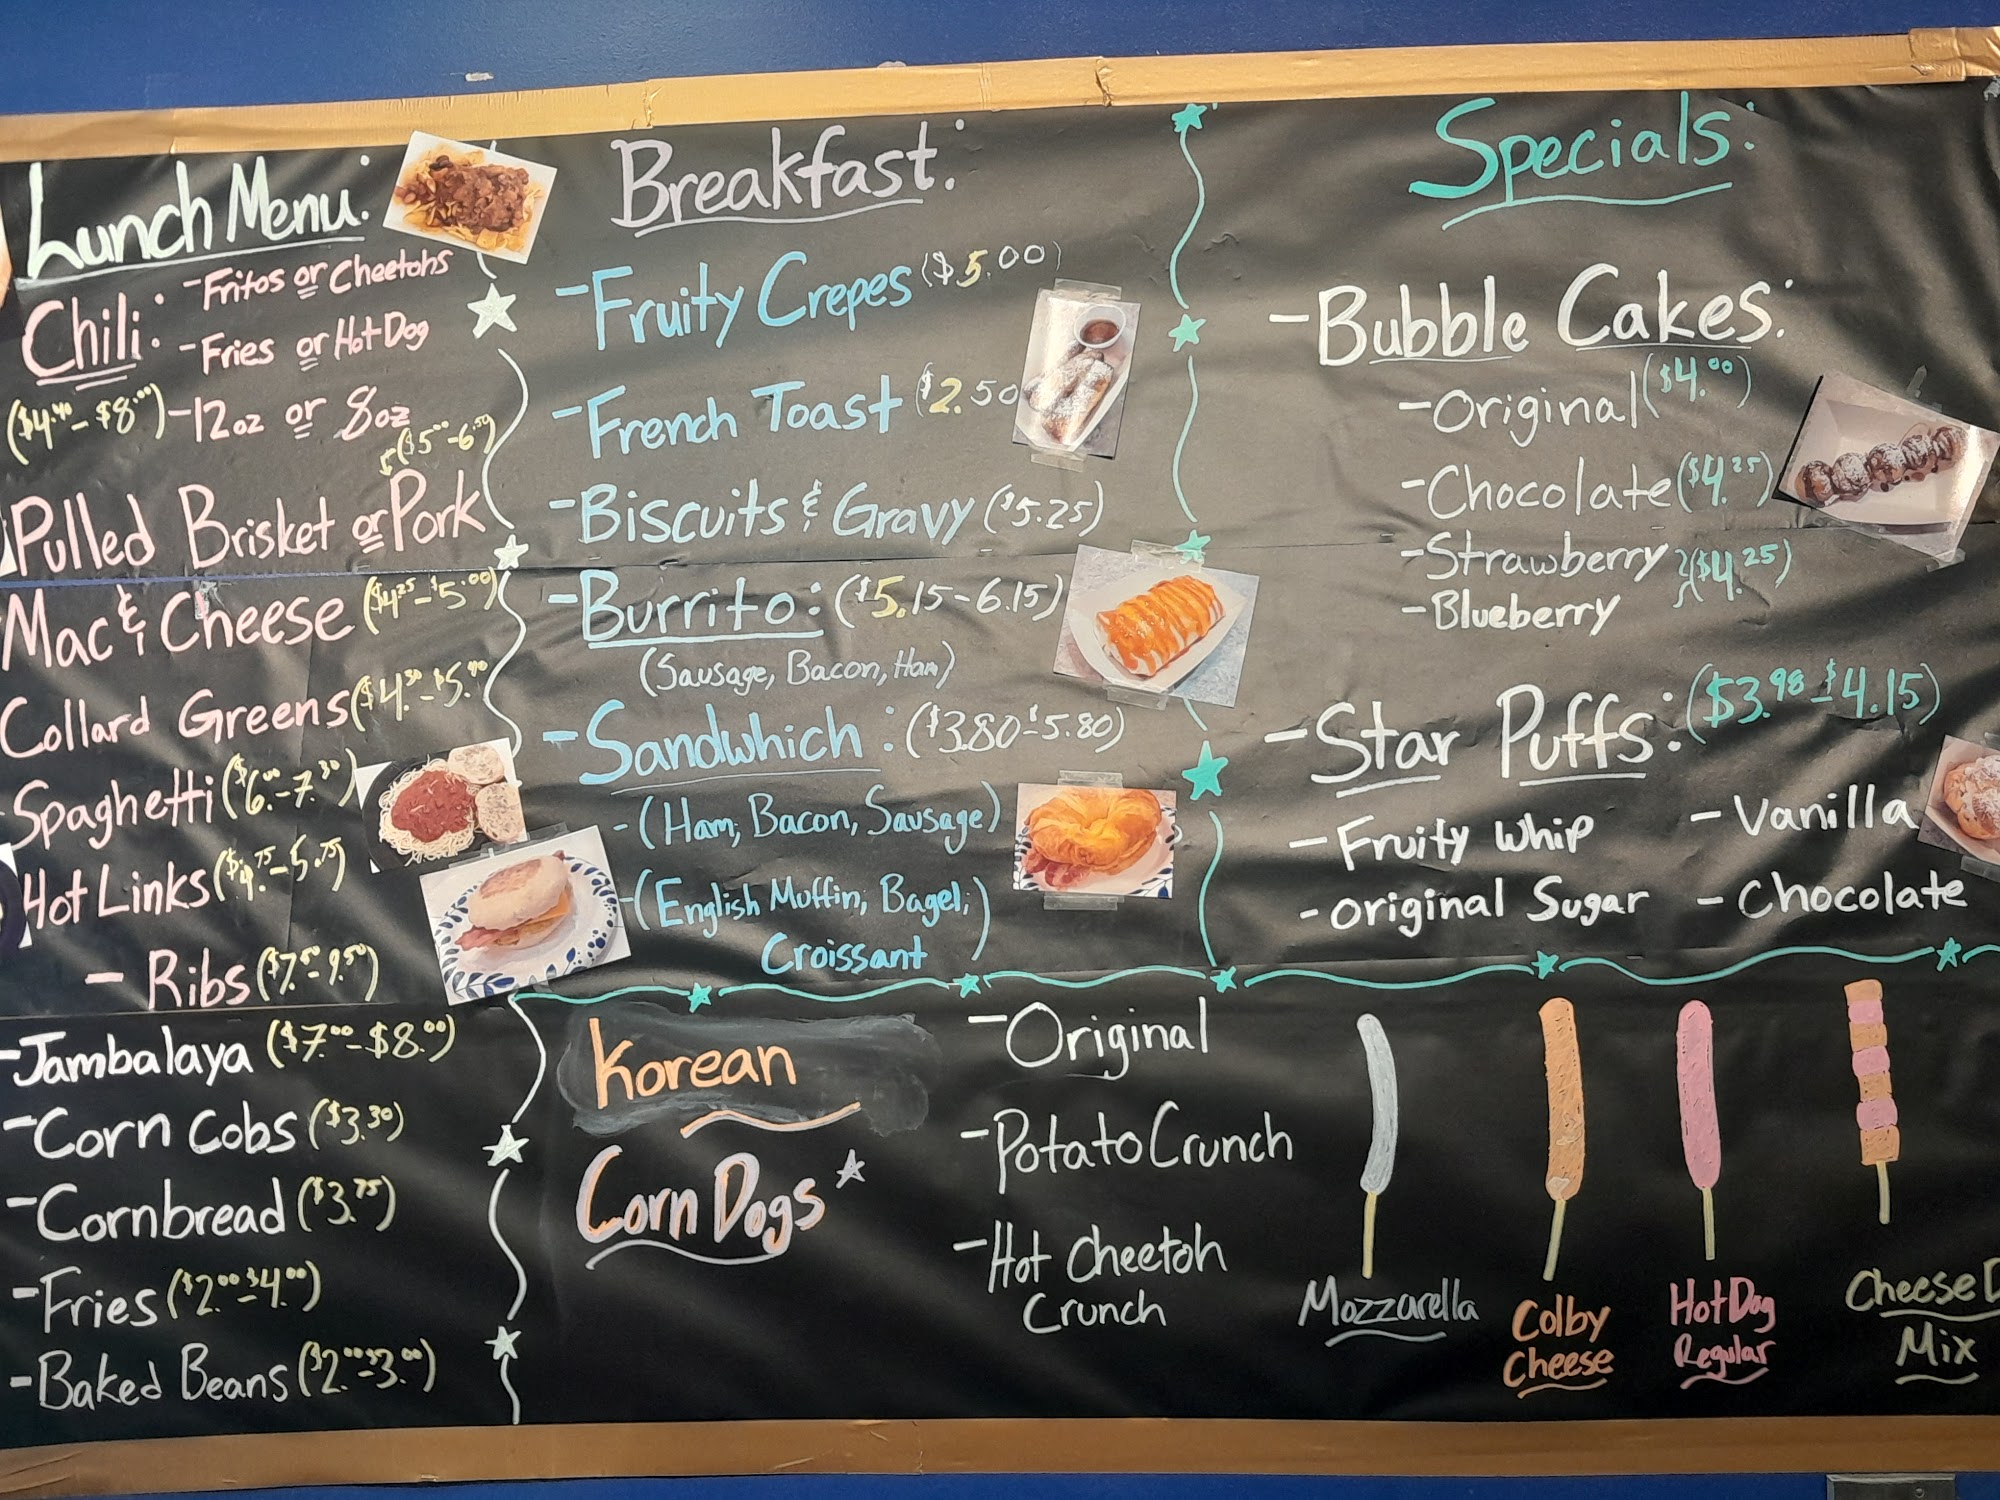 Lunch Menu:
Chili: -Fritos or Cheetohs
-Fries or Hot Dog
($4.40-$8.00) -12oz or 8oz
($5.00-6.50)
Pulled Brisket or Pork
Mac & Cheese ($4.25-$5.00)
Collard Greens ($4.30-$5.40)
Spaghetti ($6.00-7.30)
Hot Links ($4.75-5.75)
- Ribs ($7.50-9.50)
-Jambalaya ($7.00-$8.00)
-Corn Cobs ($3.30)
-Cornbread ($3.75)
-Fries ($2.00-$4.00)
-Baked Beans ($2.00-$3.00)
Breakfast:
-Fruity Crepes ($5.00)
-French Toast ($2.50
-Biscuits & Gravy ($5.25)
-Burrito: ($5.15-6.15)
(Sausage, Bacon, Ham)
-Sandwhich: ($3.80-$5.80)
-(Ham, Bacon, Sausage)
-(English Muffin, Bagel,
Croissant)
Specials:
-Bubble Cakes:
-Original ($4.00)
-Chocolate ($4.25)
-Strawberry
-Blueberry ($4.25)
-Star Puffs: ($3.98-$4.15)
-Fruity Whip
-Original Sugar
-Vanilla
-Chocolate
Korean
Corn Dogs
-Original
-Potato Crunch
-Hot Cheetoh
Crunch
Mozzarella
Colby
Cheese
Hot Dog
Regular
Cheese D
Mix